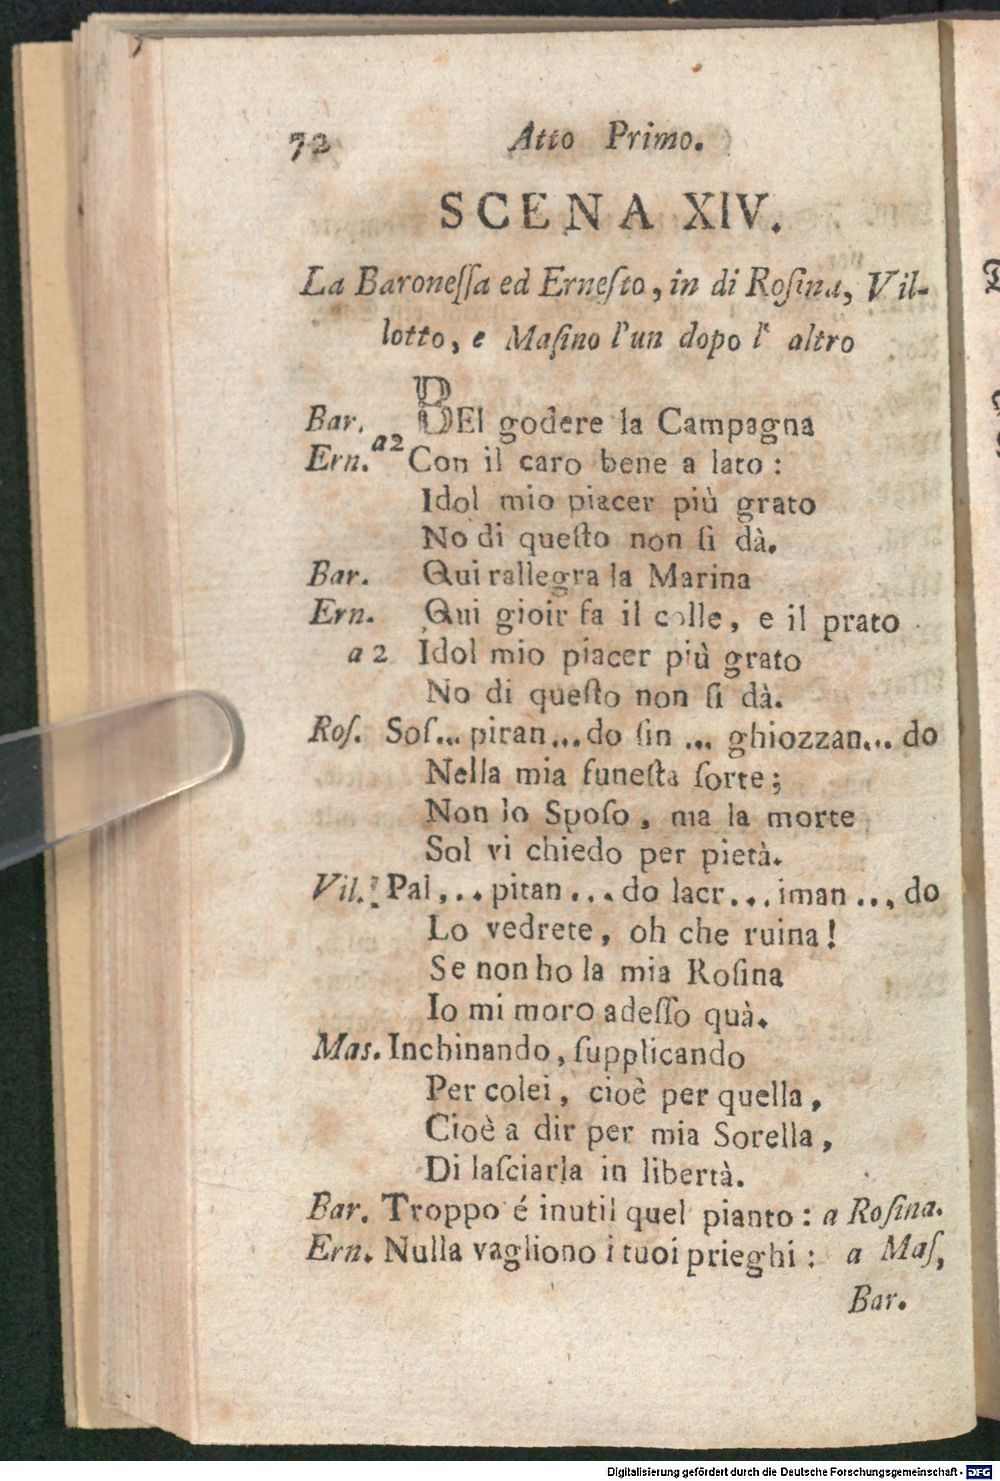 72 Atto Primo.
SCENA XIV.
La Baroneſſa ed Erneſto, in di Roſina, Vil-
lotto, e Maſino l'un dopo l' altro
Bar. BEl godere la Campagna
Ern. a2 Con il caro bene a lato:
Idol mio piacer più grato
No di queſto non ſi dà.
Bar. Qui rallegra la Marina
Ern. Qui gioir fa il colle, e il prato
a 2 Idol mio piacer più grato
No di queſto non ſi dà.
Roſ. Soſ... piran...do ſin ... ghiozzan... do
Nella mia funeſta ſorte;
Non lo Spoſo, ma la morte
Sol vi chiedo per pietà.
Vil. Pal,.. pitan ... do lacr... iman ..., do
Lo vedrete, oh che ruina!
Se non ho la mia Roſina
Io mi moro adeſſo quà.
Mas. Inchinando, ſupplicando
Per colei, cioè per quella,
Cioè a dir per mia Sorella,
Di laſciarla in libertà.
Bar. Troppo é inutil quel pianto: a Roſina.
Ern. Nulla vagliono i tuoi prieghi: a Maſ,
Bar.
Digitalisierung gefördert durch die Deutsche Forschungsgemeinschaft - DFG